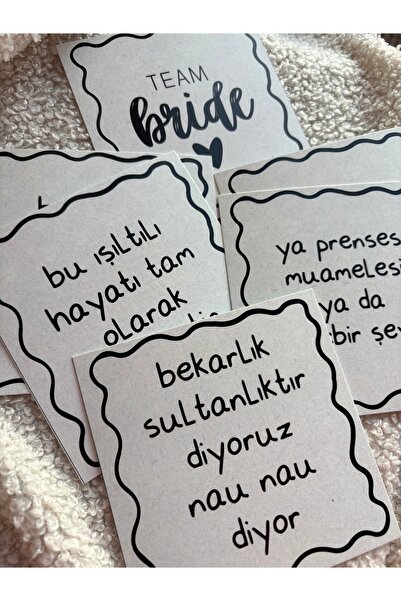 TEAM
bride
bu ışıltılı
hayatı tam
olarak
ya prenses
muamelesi
ya da
bir şey
bekarlık
sultanlıktır
diyoruz
nau nau
diyor